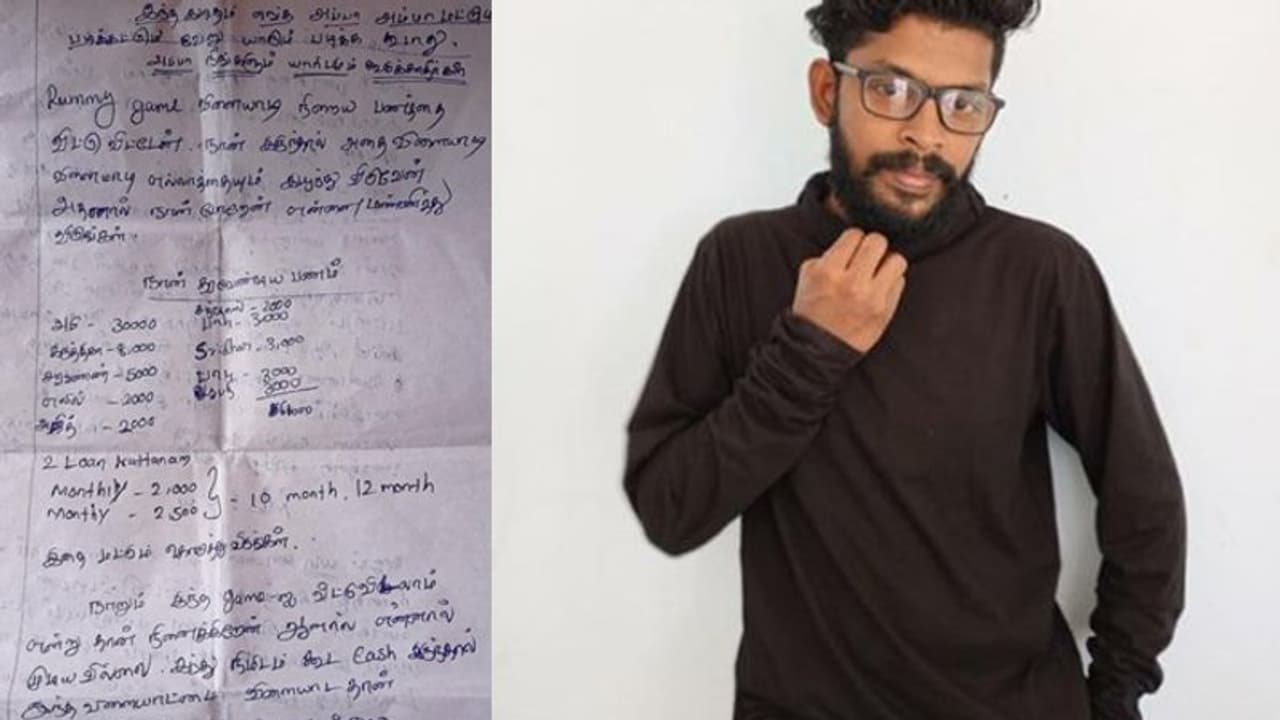 இந்த கடிதம் எங்க அப்பா அம்மா மட்டும்
படிக்கட்டும் வேறு யாரும் படிக்க கூடாது.
அம்மா நீங்களும் யார்டயும் குடுக்காதீர்கள்
Rummy game விளையாடி நிறைய பணத்தை
விட்டு விட்டேன். நான் இருந்தால் அதை விளையாடி
விளையாடி எல்லாத்தையும் இழந்து விடுவேன்
அதனால் நான் போறேன் என்னை மன்னித்து
விடுங்கள்.
நான் தரவேண்டிய பணம்
- 2000
- 30000 - 3000
- 8,000 - 3,000
சரவணன் - 5000 பாபு - 3000
- 2000 3000
அஜித் - 2000
2 Loan kattanam
Monthly - 2,000 } - 10 month, 12 month
Monthy - 2500
இதை மட்டும் கொடுத்து விடுங்கள்.
நானும் இந்த game-ஐ விட்டுவிடலாம்
என்று தான் நினைக்கிறேன் ஆனால் என்னால்
முடியவில்லை. ஐந்து நிமிடம் கூட Cash இருந்தால்
இந்த விளையாட்டை விளையாட தான்